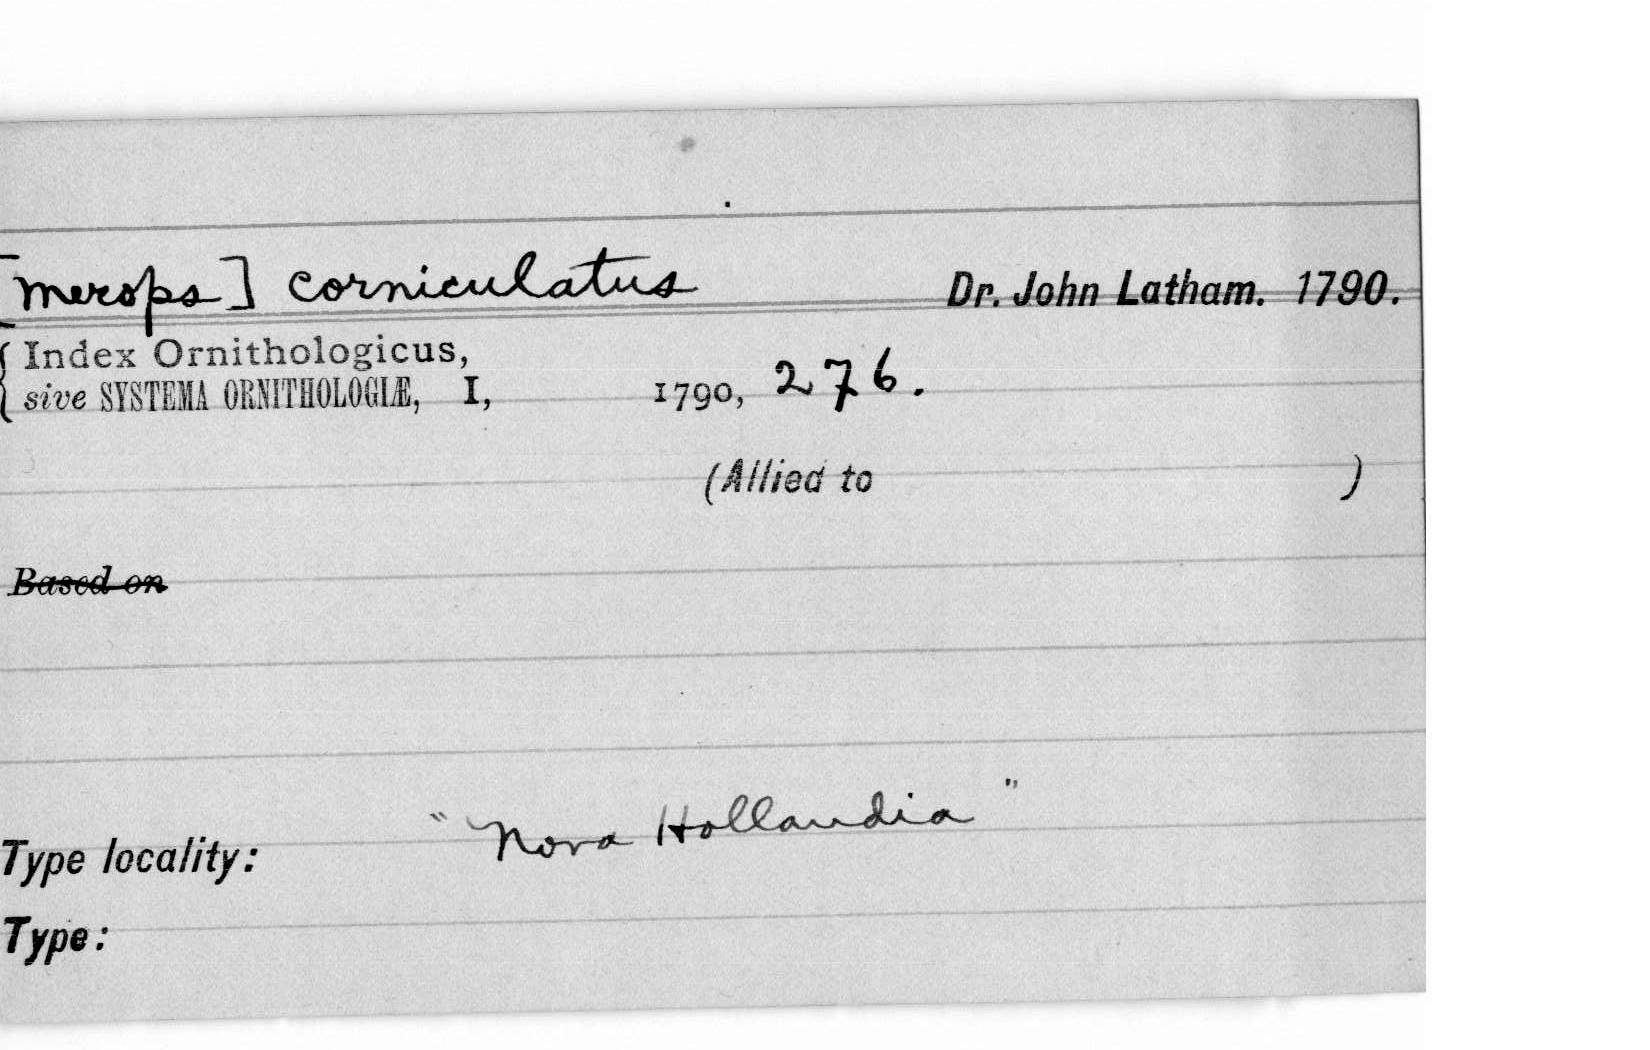 [Merops] corniculatus Dr. John Latham. 1790.
{ Index Ornithologicus,
sive SYSTEMA ORNITHOLOGIÆ, I, 1790, 276.
(Allied to )
Based on
" Nova Hollandia "
Type locality:
Type: